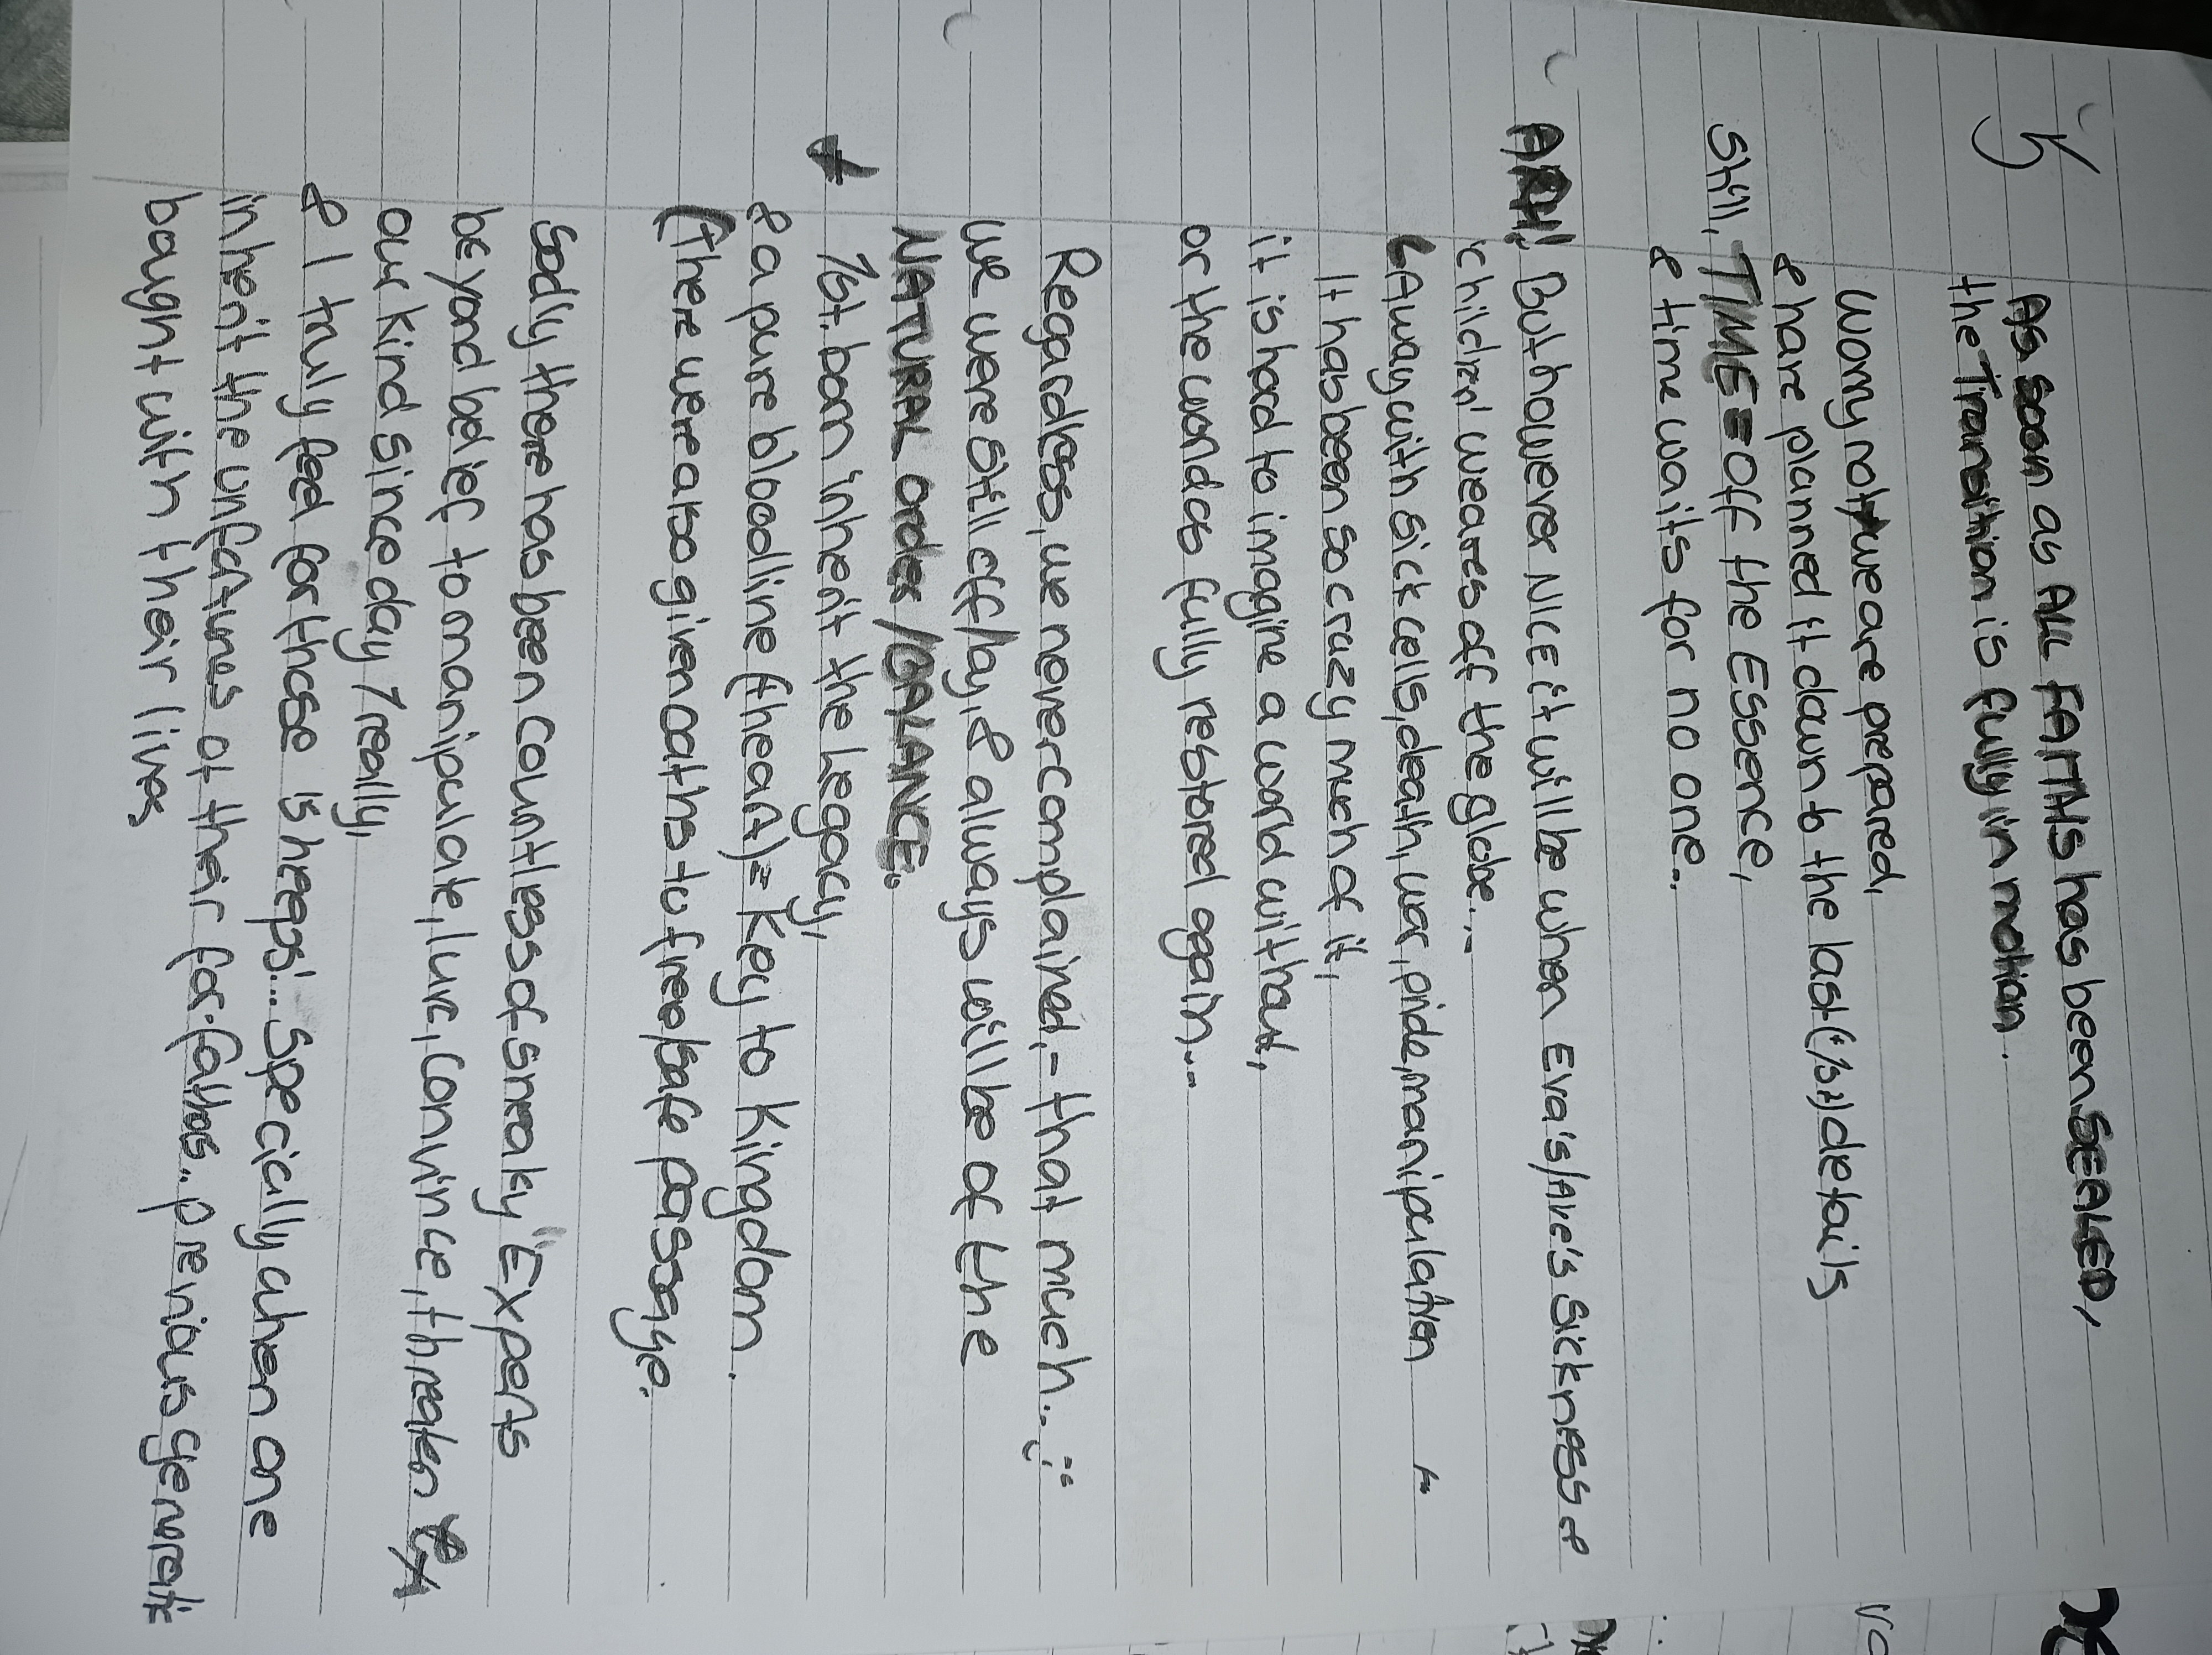 As soon as ALL FAITHS has been SEALED,
the Transition is fully in motion.
Worry not, we are prepared,
& have planned it down to the last (1st) details
Still, TIME = Off the Essence,
& time waits for no one..
ARH! But however NICE it will be when Eva's/Ave's sickness &
'children' weares off the globe...-
Away with sick cells, death, war, pride, manipulation
It has been so crazy much of it,
it is hard to imagine a world without,
or the worldas fully restored again...
Regardless, we never complained,- that much.. ;:
we were still off/lay, & always will be of the
NATURAL order/BALANCE.
1st. born inherit the legacy,
& a pure bloodline (theart) = Key to Kingdom.
(there were also given oaths to free/safe passage.
Sadly there has been countless of sneaky "Experts
beyond belief to manipulate, lure, convince, threaten
our kind since day 1 really,
& I truly feel for those 'sheeps'... Specially when one
inherit the unfortunes of their for-fathers.. previous
bought with their lives